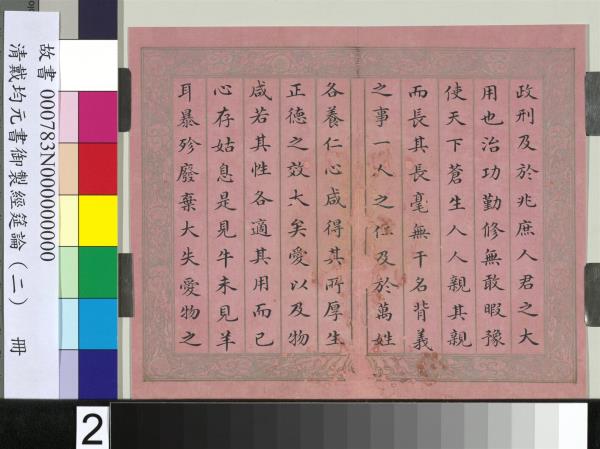 政刑及於兆庶人君之大
用也治功勤修無敢暇豫
使天下蒼生人人親其親
而長其長毫無干名背義
之事一人之仁及於萬姓
各養仁心咸得其所厚生
正德之效大矣愛以及物
咸若其性各適其用而已
心存姑息是見牛未見羊
耳暴殄廢棄大失愛物之
故書 000783N000000000
清戴均元書御製經筵論（二） 冊
2